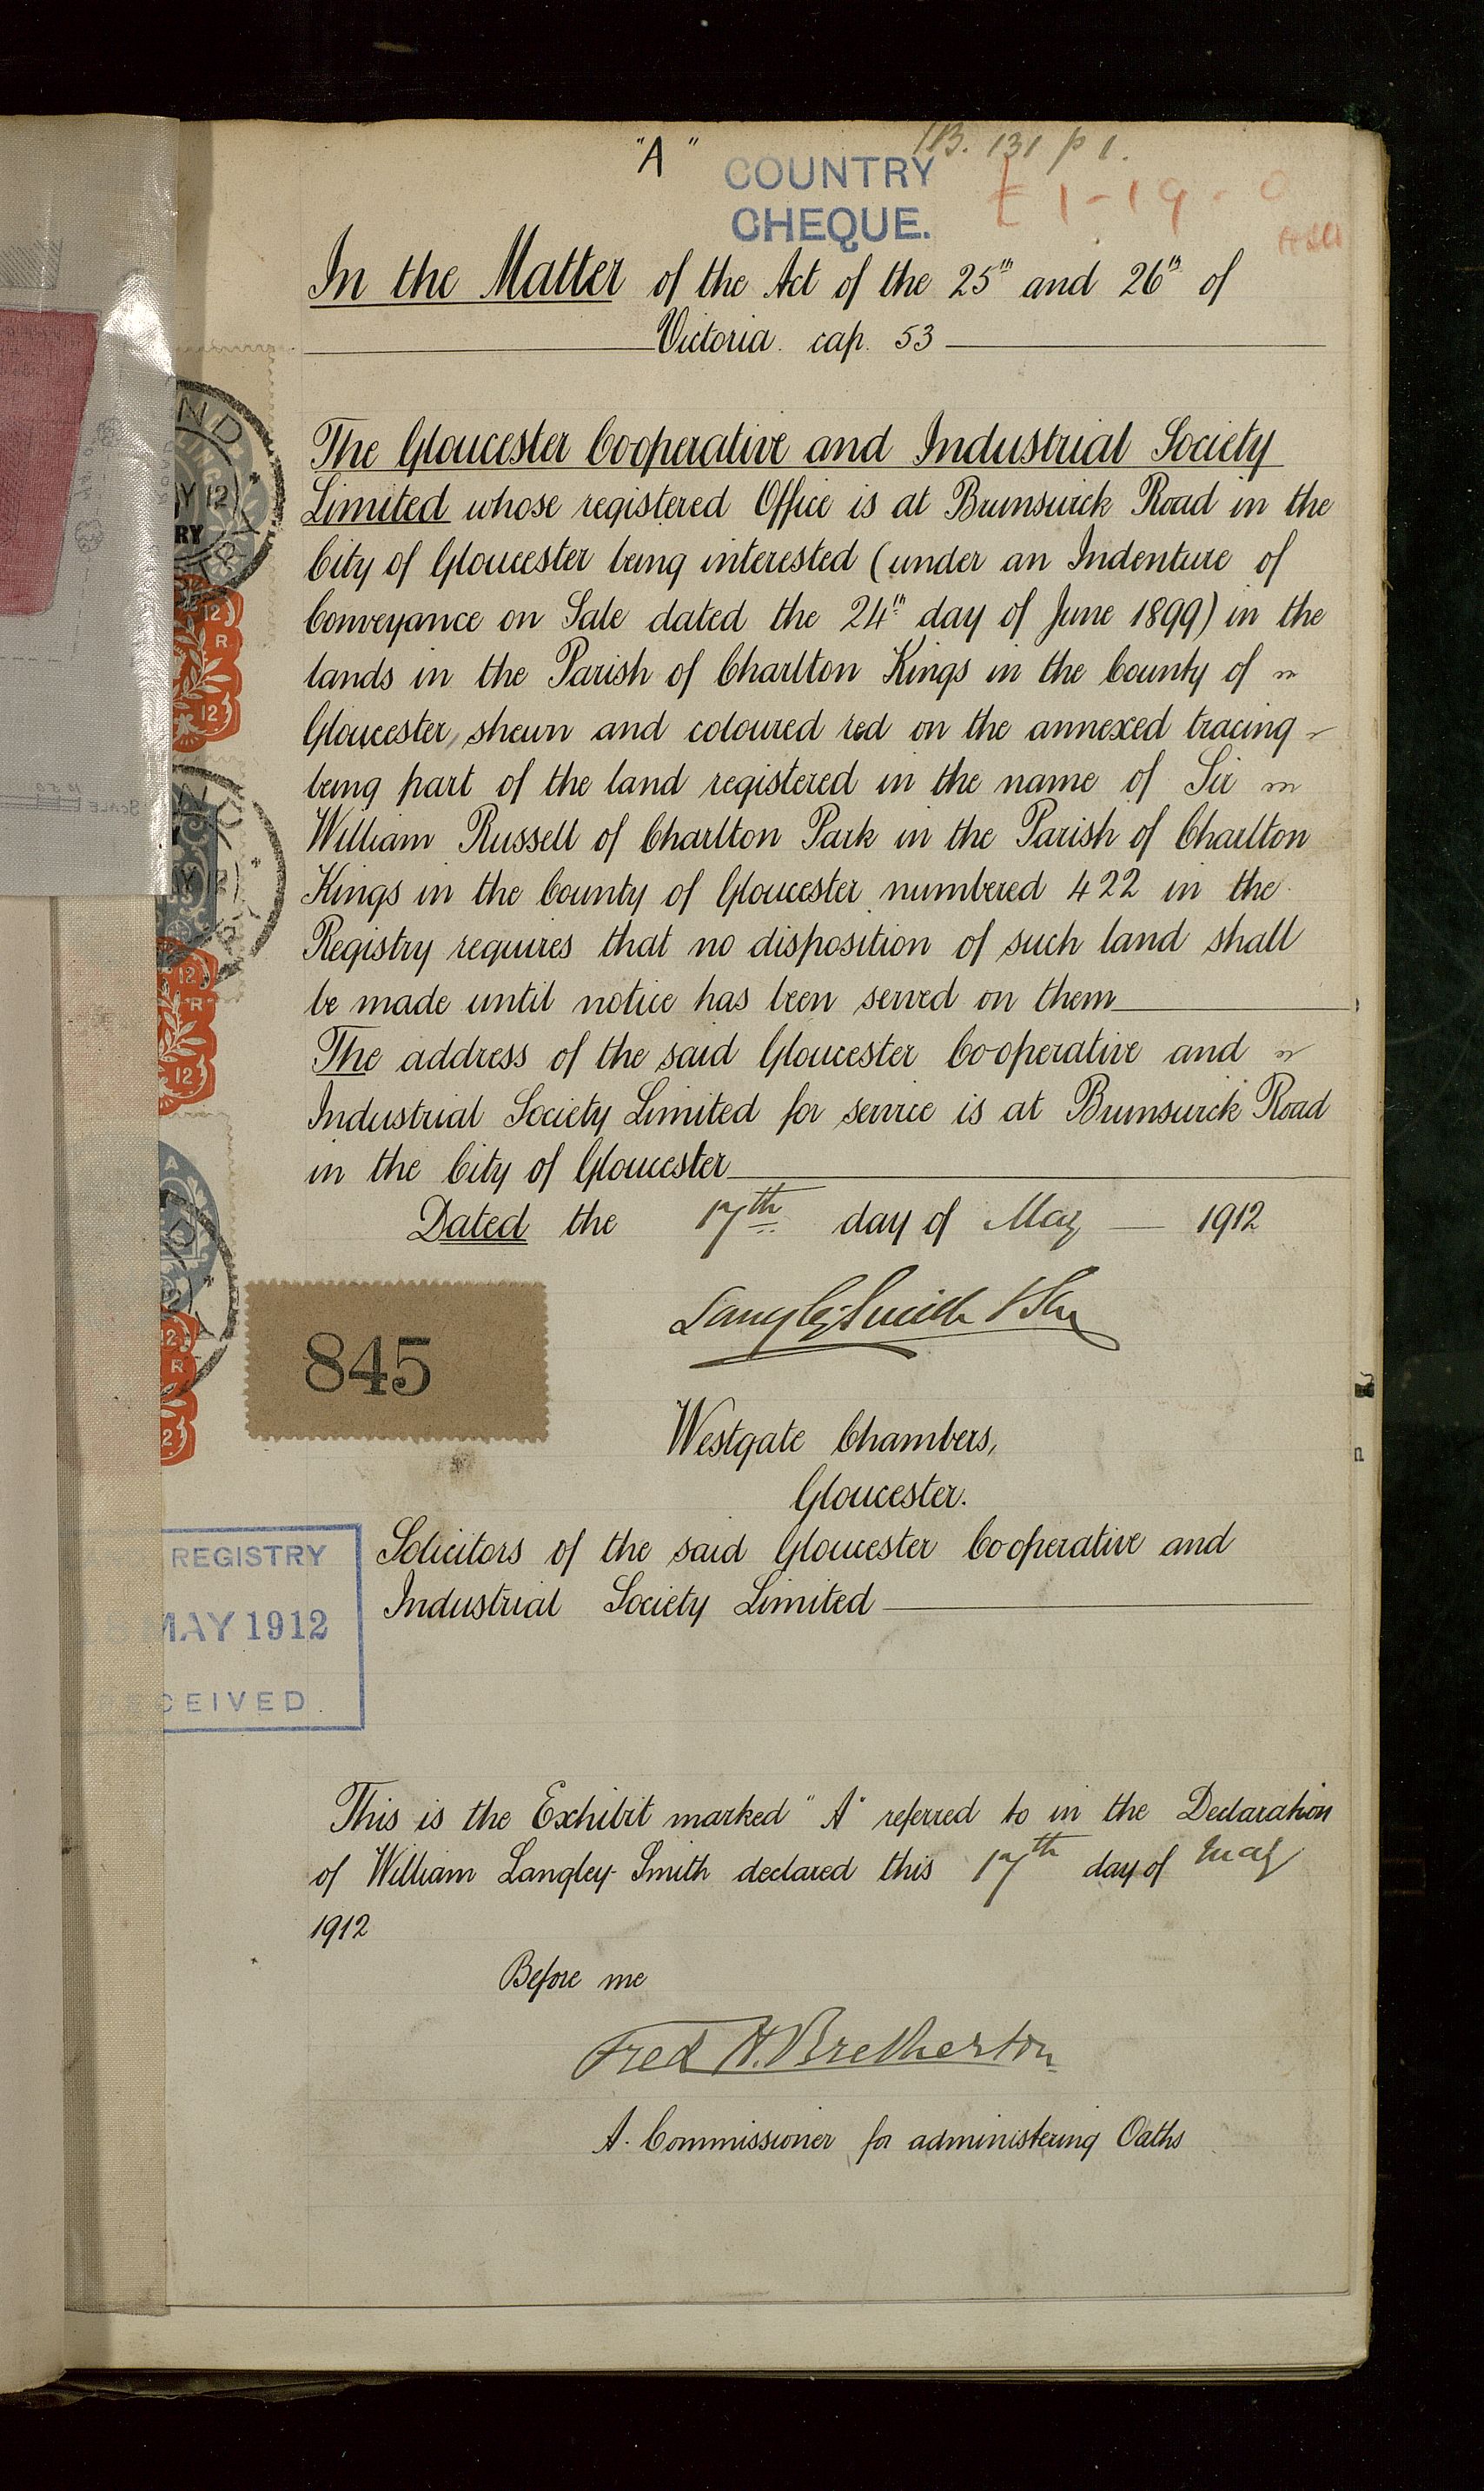 "A"
1B. 131 p 1.
COUNTRY
CHEQUE.
£1-19-0
In the Matter of the Act of the 25th and 26th of
Victoria. cap. 53
The Gloucester Cooperative and Industrial Society
Limited whose registered Office is at Brunswick Road in the
City of Gloucester being interested (under an Indenture of
Conveyance on Sale dated the 24th day of June 1899) in the
lands in the Parish of Charlton Kings in the County of
Gloucester, shewn and coloured red on the annexed tracing
being part of the land registered in the name of Sir
William Russell of Charlton Park in the Parish of Charlton
Kings in the County of Gloucester numbered 422 in the
Registry requires that no disposition of such land shall
be made until notice has been served on them
The address of the said Gloucester Cooperative and
Industrial Society Limited for service is at Brunswick Road
in the City of Gloucester
Dated the 17th day of May 1912
Langley-Smith & Son
845
Westgate Chambers,
Gloucester.
Solicitors of the said Gloucester Cooperative and
Industrial Society Limited
REGISTRY
MAY 1912
CEIVED
This is the Exhibit marked "A" referred to in the Declaration
of William Langley-Smith declared this 17th day of May
1912
Before me
Fred H. Bretherton
A. Commissioner for administering Oaths